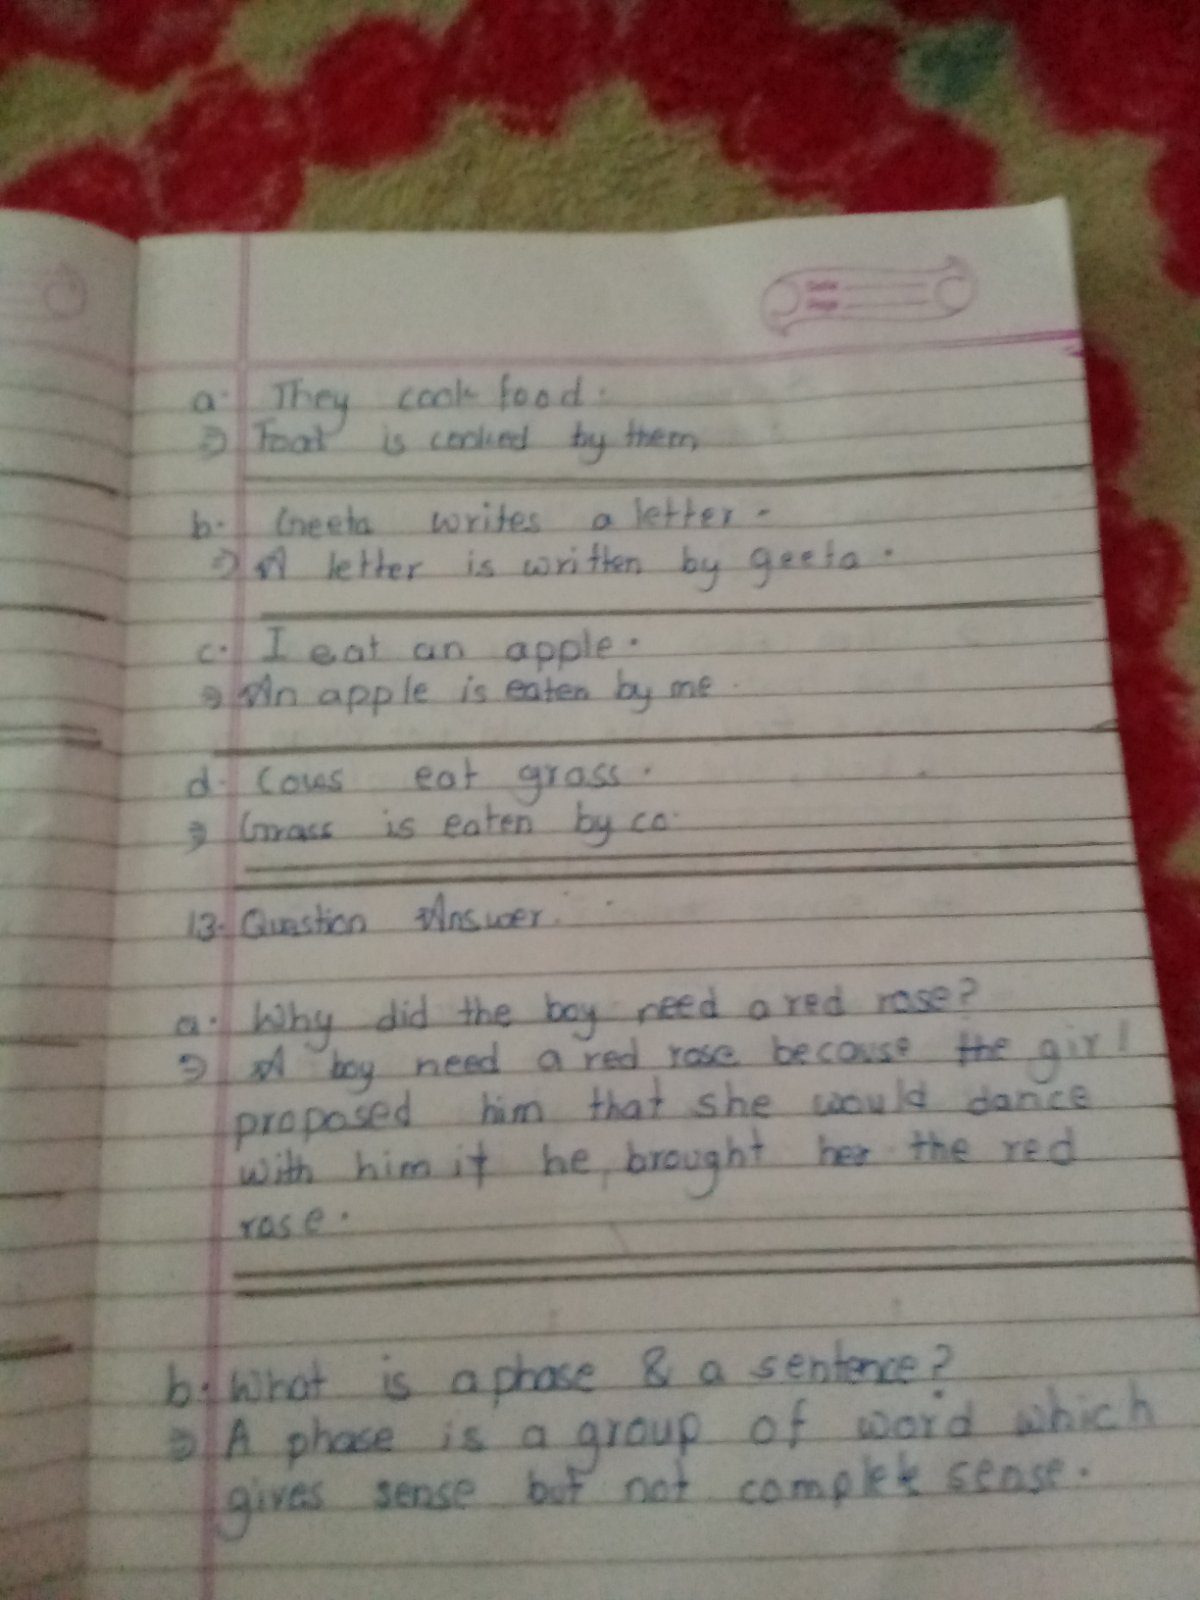 Date
Page
a. They cook food.
⇒ Foot is cooked by them
b. Geeta writes a letter.
⇒ A letter is written by geeta.
c. I eat an apple.
⇒ An apple is eaten by me
d. Cows eat grass.
⇒ Grass is eaten by co.
13. Question Answer.
a. Why did the boy need a red rose?
⇒ A boy need a red rose because the girl
proposed him that she would dance
with him if he brought her the red
rose.
b. What is a phase & a sentence?
⇒ A phase is a group of word which
gives sense but not complete sense.